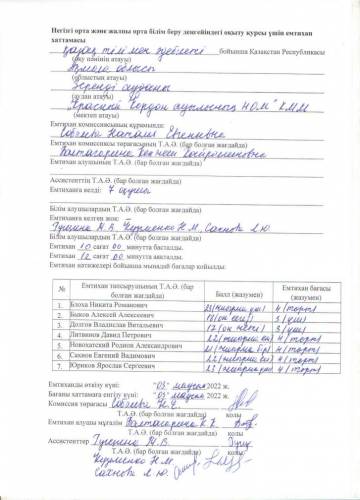 Негізгі орта және жалпы орта білім беру деңгейіндегі оқыту курсы үшін емтихан
хаттамасы
қазақ тілі мен әдебиеті бойынша Қазақстан Республикасы
(оқу пәнінің атауы)
Ақмола облысы
(облыстың атауы)
Зеренді ауданы
(аудан атауы)
"Красный Кордон ауылының НОМ" КММ
(мектеп атауы)
Емтихан комиссиясының құрамында:
Собчева Наталья Евгеньевна
Емтихан комиссиясы төрағасының Т.А.Ә. (бар болған жағдайда)
Емтихан алушының Т.А.Ә. (бар болған жағдайда)
Ассистенттің Т.А.Ә. (бар болған жағдайда)
Емтиханға келді: 7 оқушы
Білім алушылардың Т.А.Ә. (бар болған жағдайда)
Емтиханға келген жоқ:
Гущина М.В. Куриленко Н.М., Сахнова Л.Ю.
Білім алушылардың Т.А.Ә. (бар болған жағдайда)
Емтихан 10 сағат 00 минутта басталды.
Емтихан 12 сағат 00 минутта аяқталды.
Емтихан нәтижелері бойынша мынадай бағалар қойылды:
№ Емтихан тапсырушының Т.А.Ә. (бар болған жағдайда) Балл (жазумен) Емтихан бағасы (жазумен)
1. Блоха Никита Романович 4 (төрт)
2. Быков Алексей Алексеевич 3 (үш)
3. Долгов Владислав Витальевич 3 (үш)
4. Литвинов Давид Петрович 4 (төрт)
5. Новохатский Родион Александрович 4 (төрт)
6. Сахнов Евгений Вадимович 4 (төрт)
7. Юриков Ярослав Сергеевич 4 (төрт)
Емтиханды өткізу күні: "03" маусым 2022 ж.
Бағаны хаттамаға енгізу күні: "03" маусым 2022 ж.
Комиссия төрағасы Собчева Н.Е.
Т.А.Ә. (бар болған жағдайда) қолы
Емтихан алушы мұғалім
Т.А.Ә. (бар болған жағдайда) қолы
Ассистенттер Гущина М.В.
Т.А.Ә. (бар болған жағдайда) қолы
Куриленко Н.М.
Сахнова Л.Ю.